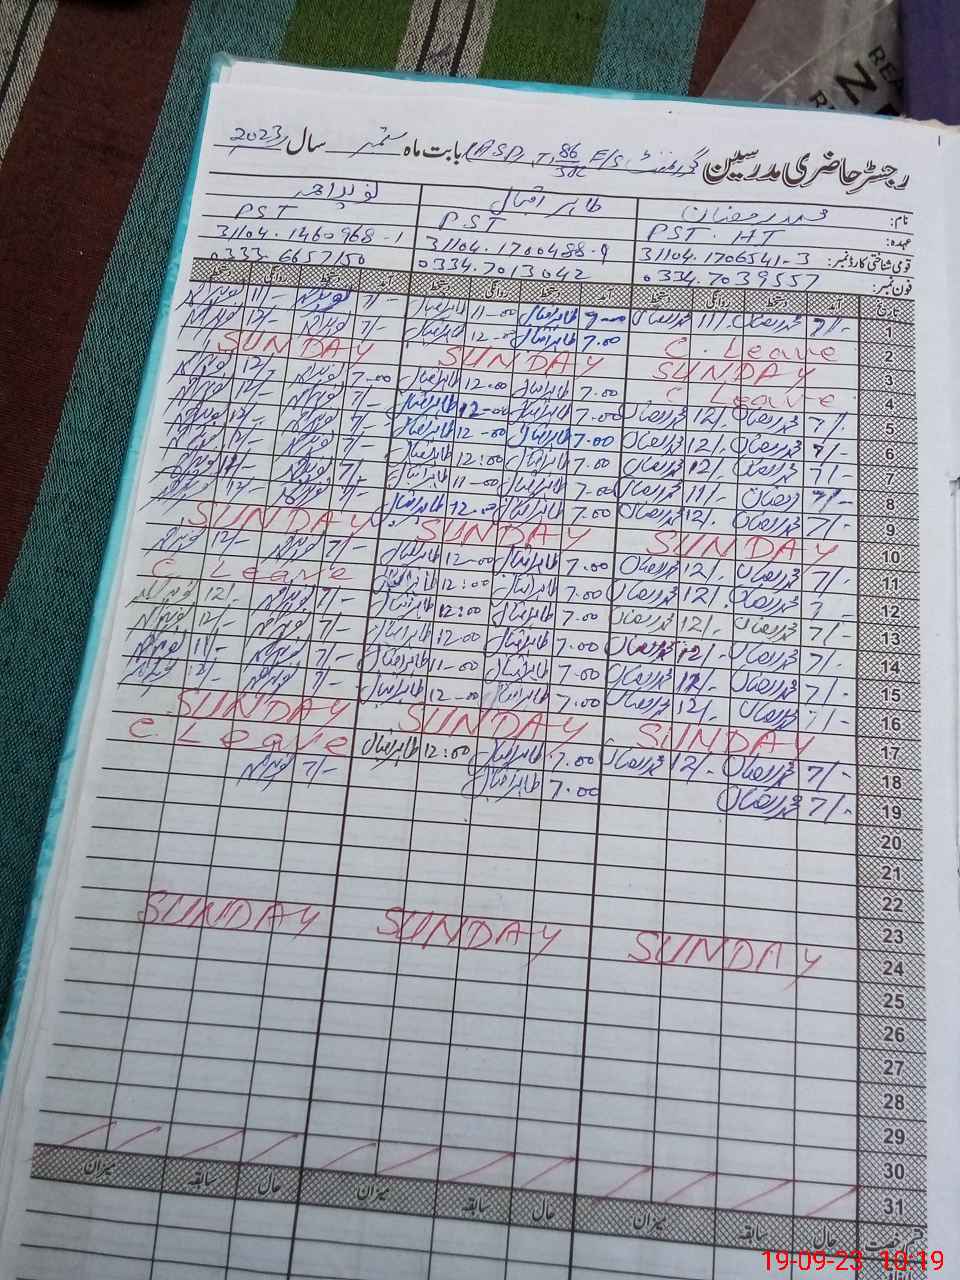 رجسٹر حاضری مدرسین گورنمنٹ E/S 86 بابت ماہ ستمبر سال 2023
نام: محمد رمضان طاہر اقبال نوید احمد
عہدہ: PST. HT P.ST PST
قومی شناختی کارڈ نمبر: 31104.1706541-3 31104.1700488-9 31104.1460968-1
فون نمبر: 0334.7039557 0334.7013042 0333-6657150
تاریخ آمد دستخط روانگی دستخط آمد دستخط روانگی دستخط آمد دستخط روانگی دستخط
1 7/- محمد رمضان 11/- محمد رمضان طاہر اقبال 11-00 طاہر اقبال 7/- 11/-
2 C. Leave 7.00 طاہر اقبال 12-00 طاہر اقبال 7/- 12/-
3 SUNDAY SUNDAY SUNDAY
4 C Leave 7.00 طاہر اقبال 12.00 طاہر اقبال 7.00 12/-
5 7/- محمد رمضان 12/- محمد رمضان 7.00 طاہر اقبال 12-00 طاہر اقبال 7/- 12/-
6 7/- محمد رمضان 12/- محمد رمضان 7.00 طاہر اقبال 12-00 طاہر اقبال 7/- 12/-
7 7/- محمد رمضان 12/- محمد رمضان 7.00 طاہر اقبال 12:00 طاہر اقبال 7/- 12/-
8 7/- رمضان 11/- محمد رمضان 7.00 طاہر اقبال 11-00 طاہر اقبال 7/- 11/-
9 7/- محمد رمضان 12/- محمد رمضان 7.00 طاہر اقبال 12.00 طاہر اقبال 7/- 12/-
10 SUNDAY SUNDAY SUNDAY
11 7/- محمد رمضان 12/- محمد رمضان 7.00 طاہر اقبال 12-00 طاہر اقبال 7/- 12/-
12 7 محمد رمضان 12/- محمد رمضان 7.00 طاہر اقبال 12:00 طاہر اقبال C Leave
13 7/- محمد رمضان 12/- محمد رمضان 7.00 طاہر اقبال 12:00 طاہر اقبال 7/- 12/-
14 7/- محمد رمضان 12/- محمد رمضان 7.00 طاہر اقبال 12.00 طاہر اقبال 7/- 12/-
15 7/- محمد رمضان 12/- محمد رمضان 7.00 طاہر اقبال 11-00 طاہر اقبال 7/- 11/-
16 محمد رمضان 12/- محمد رمضان 7.00 طاہر اقبال 12-00 طاہر اقبال 7/- 12/-
17 SUNDAY SUNDAY SUNDAY
18 7/- محمد رمضان 12/- محمد رمضان 7.00 طاہر اقبال 12:00 طاہر اقبال C Leave
19 7/- محمد رمضان 7.00 طاہر اقبال 7/-
20
21
22
23
24 SUNDAY SUNDAY SUNDAY
25
26
27
28
29
30
31
قسم رخصت حال سابقہ میزان حال سابقہ میزان حال سابقہ میزان
19-09-23 10:19